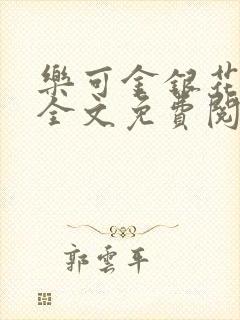 樂可金銀花
全文免費閱
郭雲平